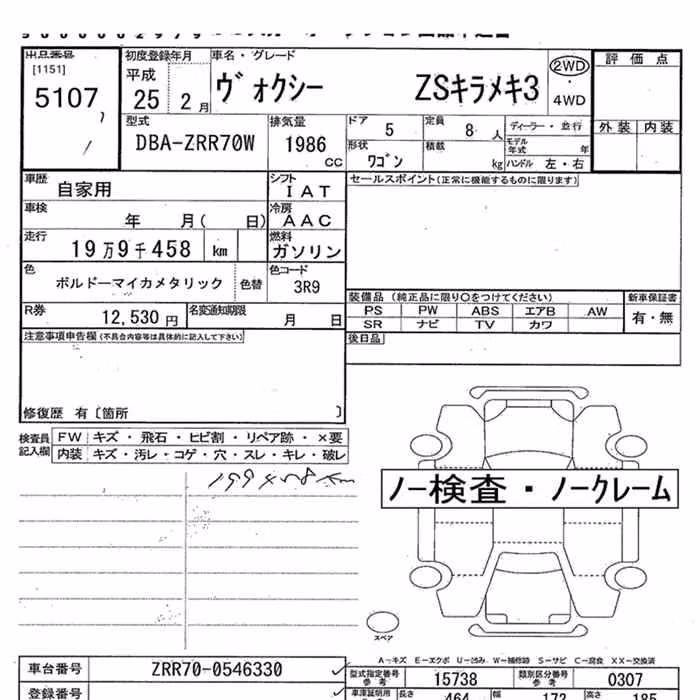 出品番号 初度登録年月 車名・グレード 評価点
[1151] 平成 2WD
5107 25 2月 ヴォクシー ZSキラメキ3 4WD
型式 排気量 ドア 定員 ディーラー・並行 外装 内装
DBA-ZRR70W 1986 cc 5 8人 モデル年式 年
形状 積載 ハンドル 左・右
ワゴン kg
車歴 自家用 シフト IAT セールスポイント(正常に機能するものに限ります)
車検 年 月( 日) 冷房 AAC
走行 19万9千458 km 燃料 ガソリン
色 ボルドーマイカメタリック 色替 色コード 3R9
装備品 (純正品に限り○をつけてください) 新車保証書
PS PW ABS エアB AW 有・無
SR ナビ TV カワ
R券 12,530円 名変通知期限 月 日
注意事項申告欄 (不具合内容等は具体的に記入して下さい) 後日品
修復歴 有〔箇所 〕
検査員記入欄 FW キズ・飛石・ヒビ割・リペア跡・×要
内装 キズ・汚レ・コゲ・穴・スレ・キレ・破レ
ノー検査・ノークレーム
スペア
A-キズ E-エクボ U-凹み W-補修跡 S-サビ C-腐食 XX-交換済
車台番号 ZRR70-0546330 型式指定番号 参考 15738 類別区分番号 参考 0307
登録番号 車庫証明用 長さ 464 幅 172 高さ 185